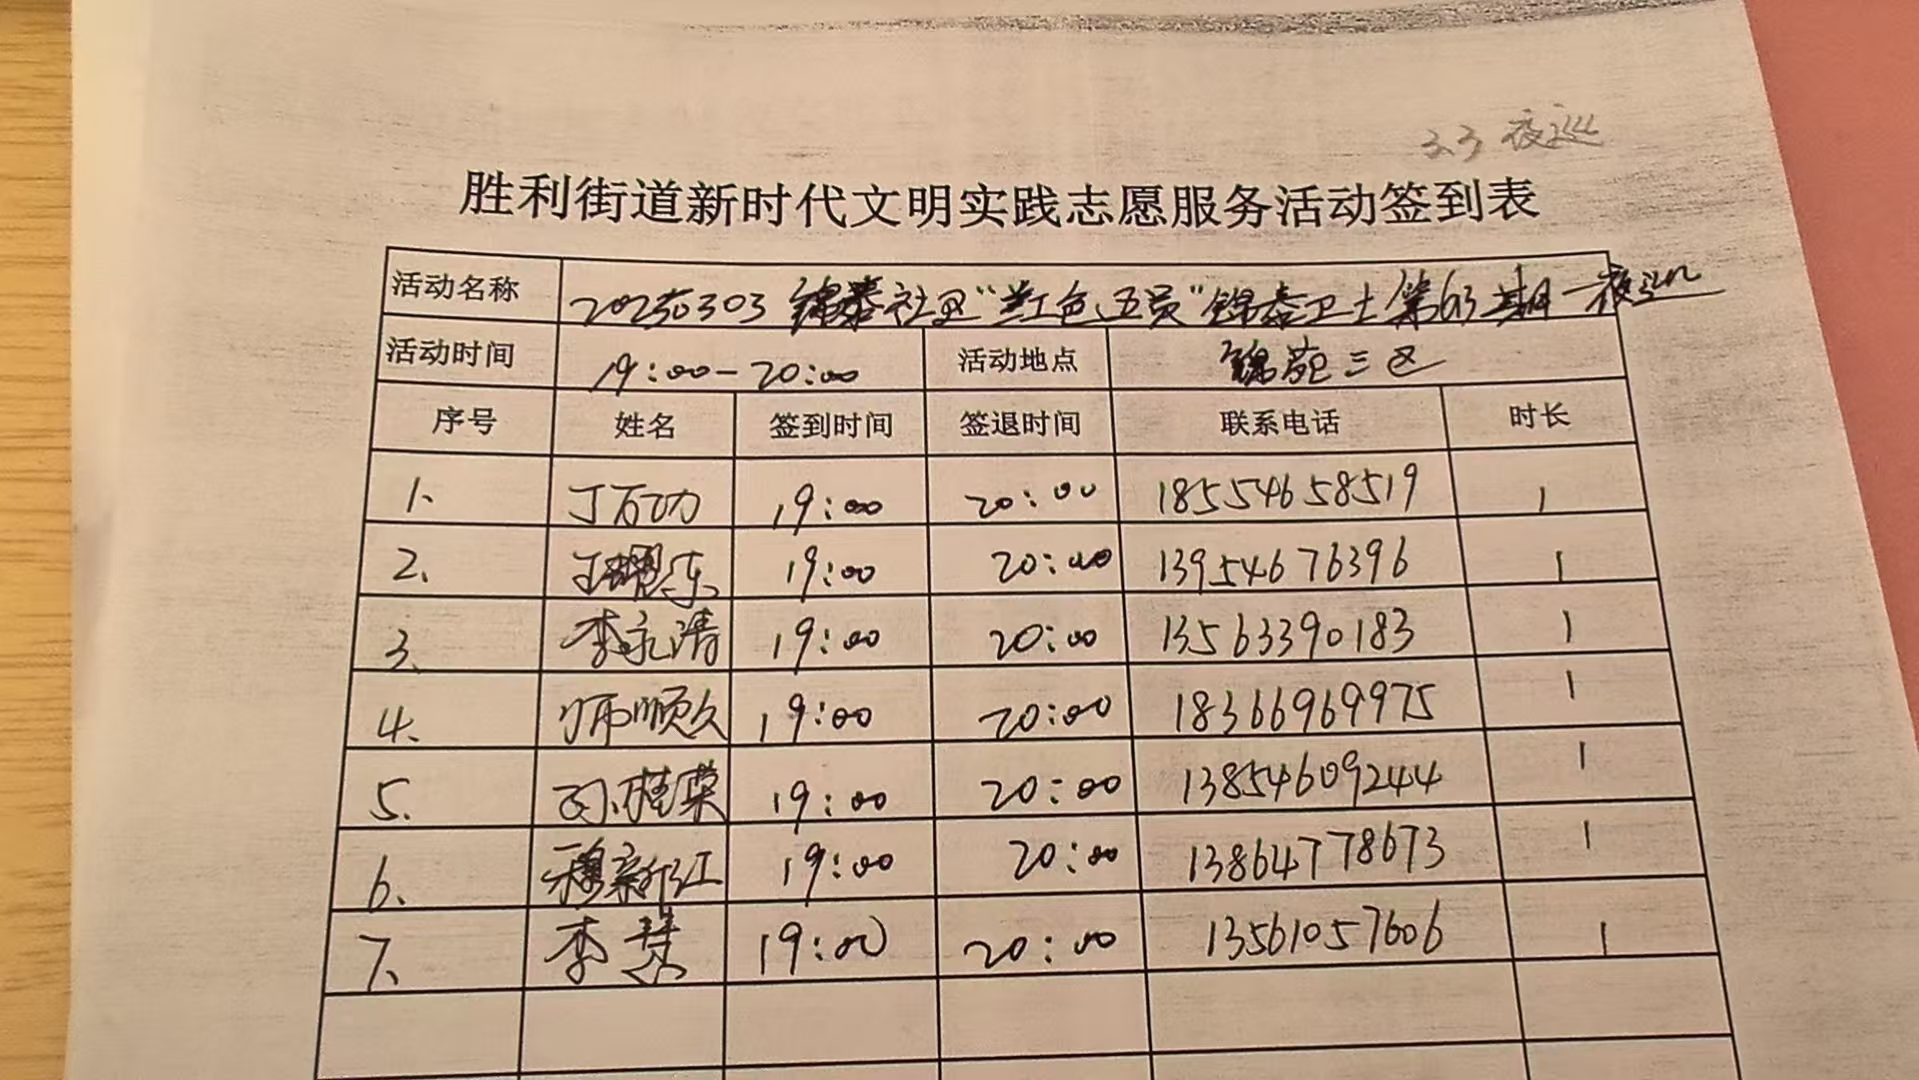 3.3 夜巡
胜利街道新时代文明实践志愿服务活动签到表
活动名称 20250303 锦泰社区“红色五员”锦泰卫士第63期—夜巡
活动时间 19:00-20:00 活动地点 锦苑三区
序号 姓名 签到时间 签退时间 联系电话 时长
1、 丁万功 19:00 20:00 18554658519 1
2、 东 19:00 20:00 13954676396 1
3、 李永清 19:00 20:00 13563390183 1
4、 师顺久 19:00 20:00 18366969975 1
5、 孙桂荣 19:00 20:00 13854609244 1
6、 穆新江 19:00 20:00 13864778673 1
7、 李慧 19:00 20:00 13561057606 1